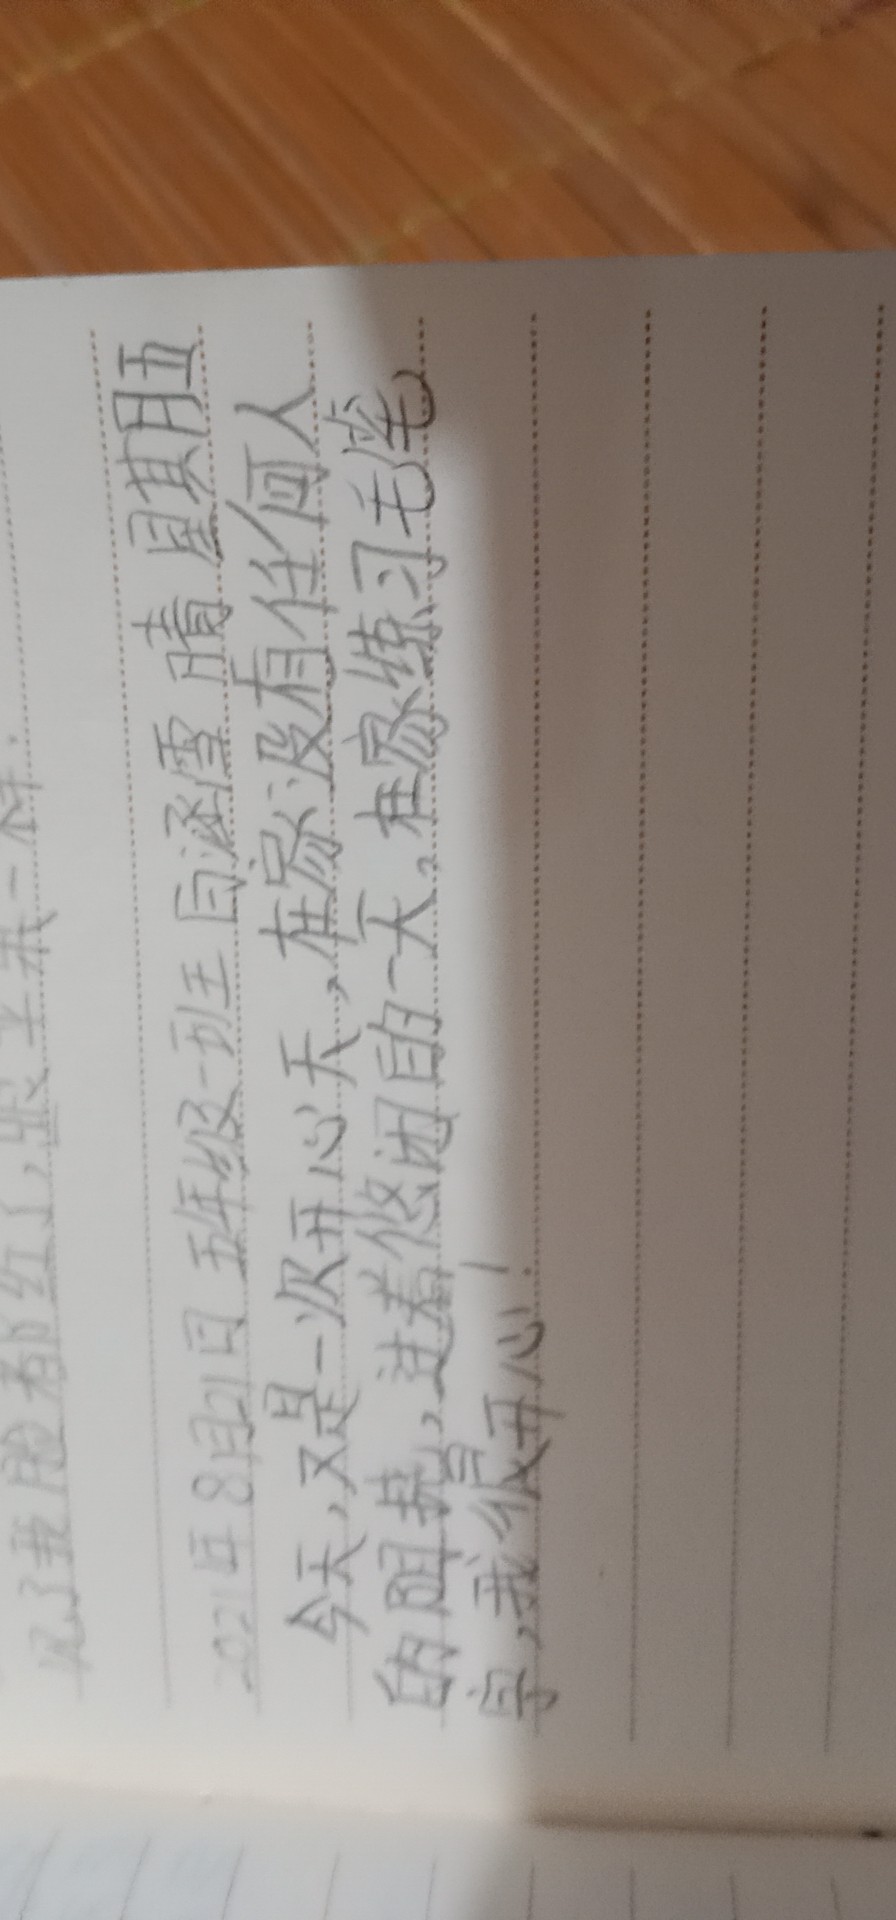 见了我脸都红了,跟苹果一样.
2021年8月21日 五年级一班王自涵雪 晴 星期五
今天,又是一次开心天,在家没有任何人
的阻挠,过着悠闲的一天。在家练习毛笔
字,我很开心!